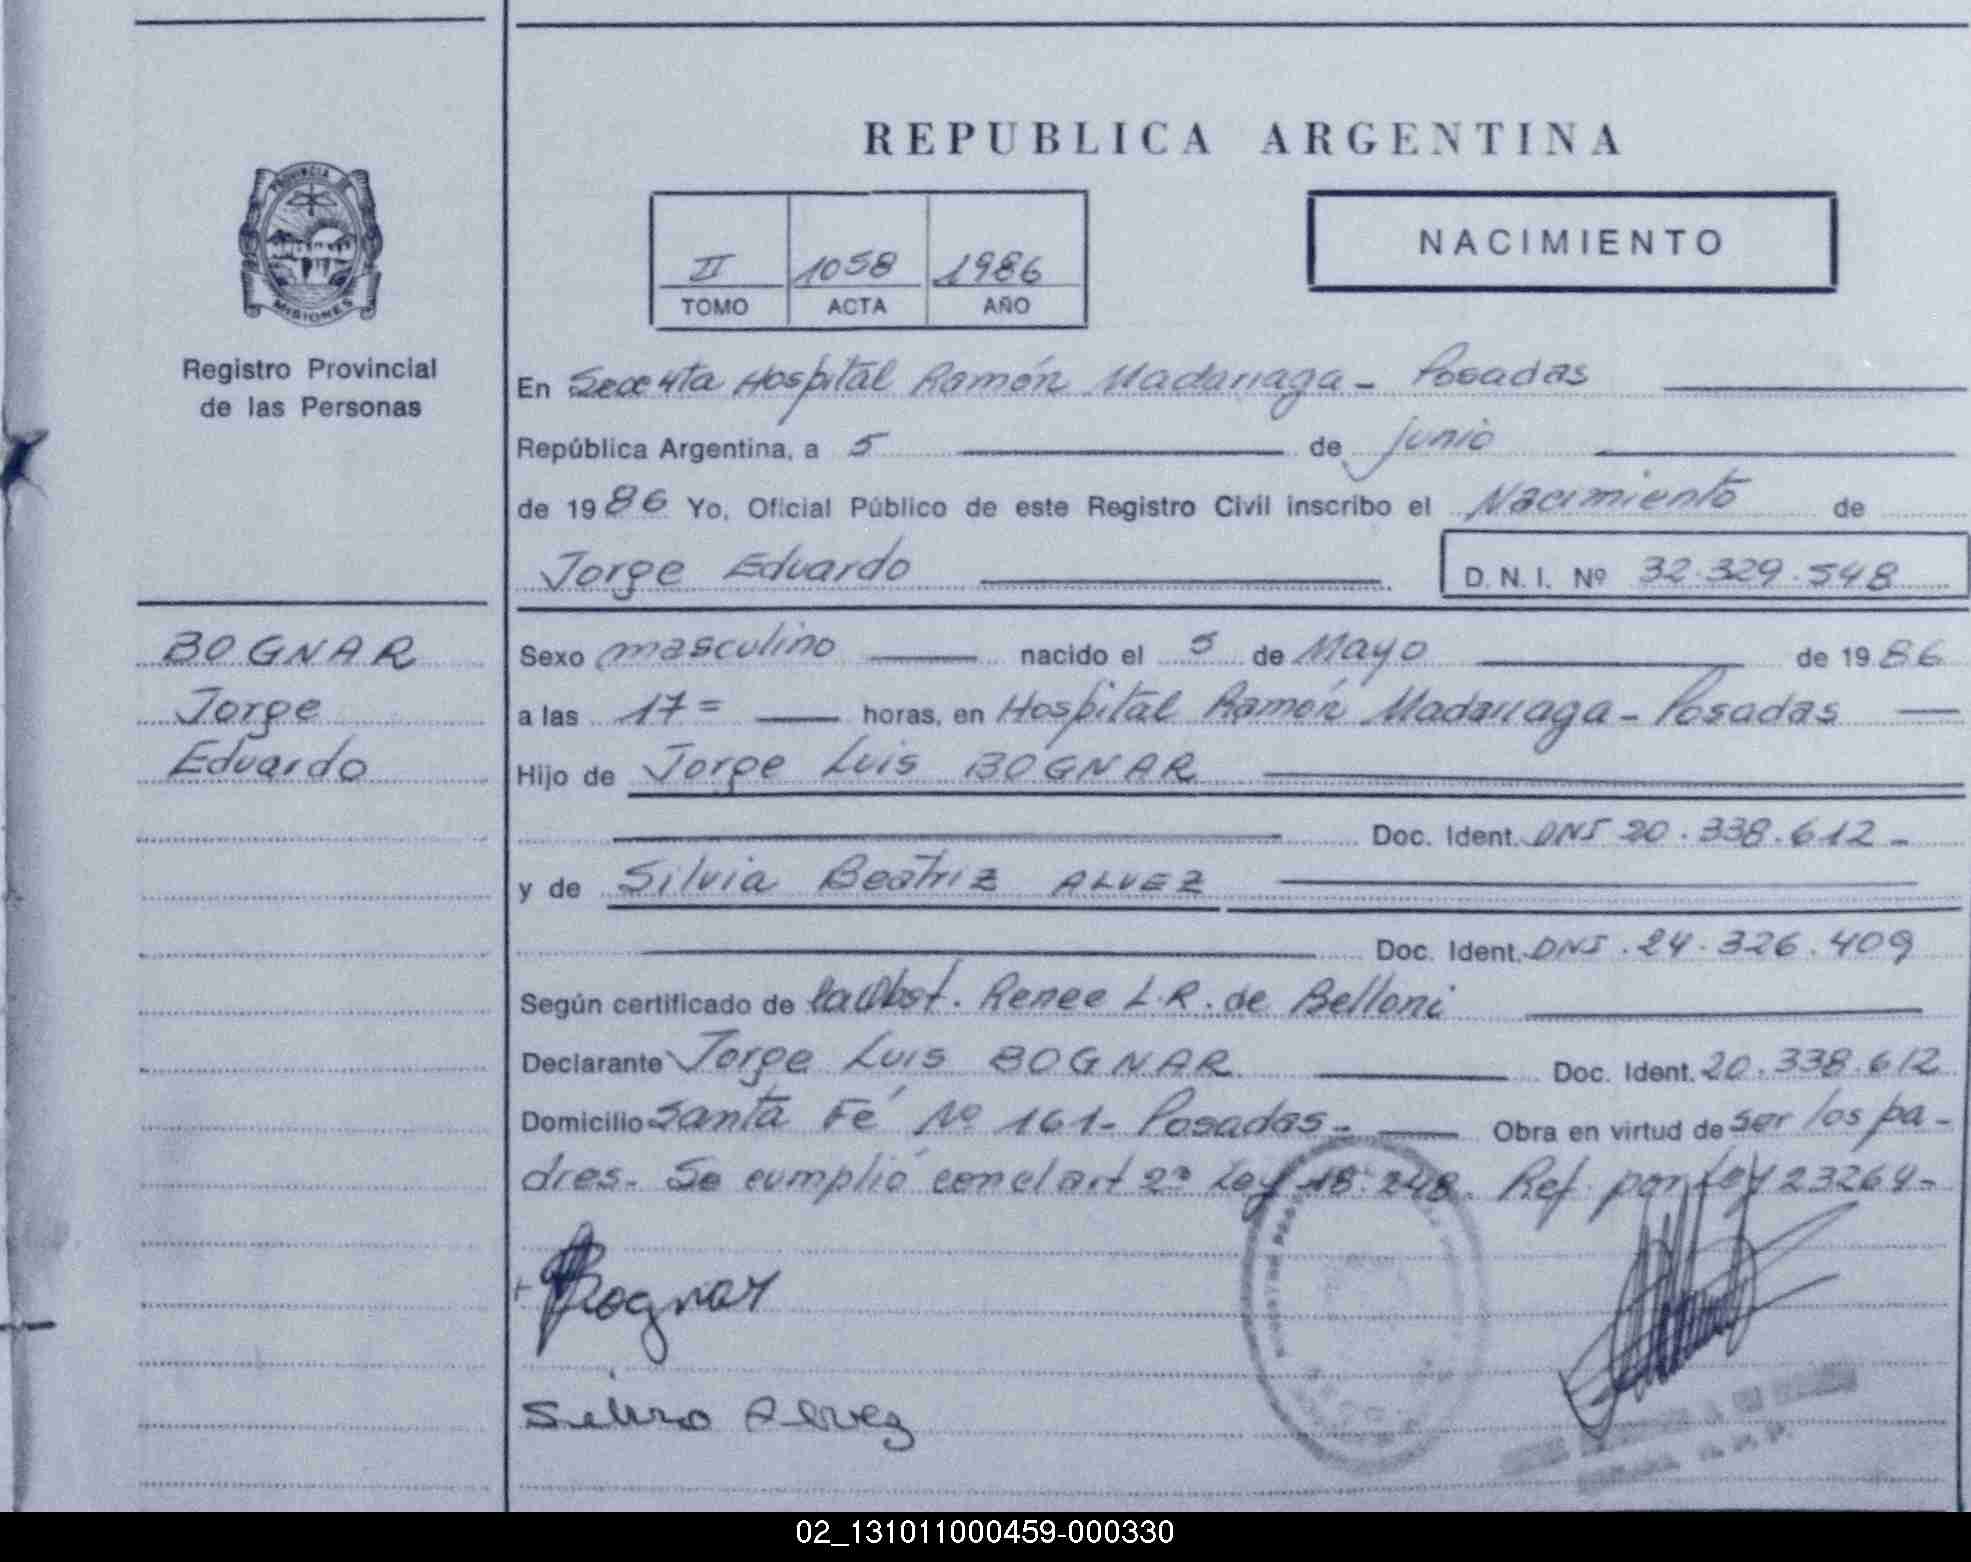 PROVINCIA DE
MISIONES
Registro Provincial
de las Personas
BOGNAR
Jorge
Eduardo
REPUBLICA ARGENTINA
II 1058 1986
TOMO ACTA AÑO
NACIMIENTO
En Hospital Ramón Madariaga - Posadas
República Argentina, a 5 de junio
de 1986 Yo, Oficial Público de este Registro Civil inscribo el Nacimiento de
Jorge Eduardo D. N. I. Nº 32.329.548
Sexo masculino nacido el 5 de Mayo de 1986
a las 17= horas, en Hospital Ramón Madariaga - Posadas
Hijo de Jorge Luis BOGNAR
Doc. Ident. DNI 20.338.612-
y de Silvia Beatriz ALVEZ
Doc. Ident. DNI. 24.326.409
Según certificado de la Obst. Renee L.R. de Belloni
Declarante Jorge Luis BOGNAR Doc. Ident. 20.338.612
Domicilio Santa Fé Nº 161- Posadas- Obra en virtud de ser los pa-
dres- Se cumplió con el art 2º Ley 18.248. Ref. por Ley 23264-
Bognar
Silvia Alvez
02_131011000459-000330